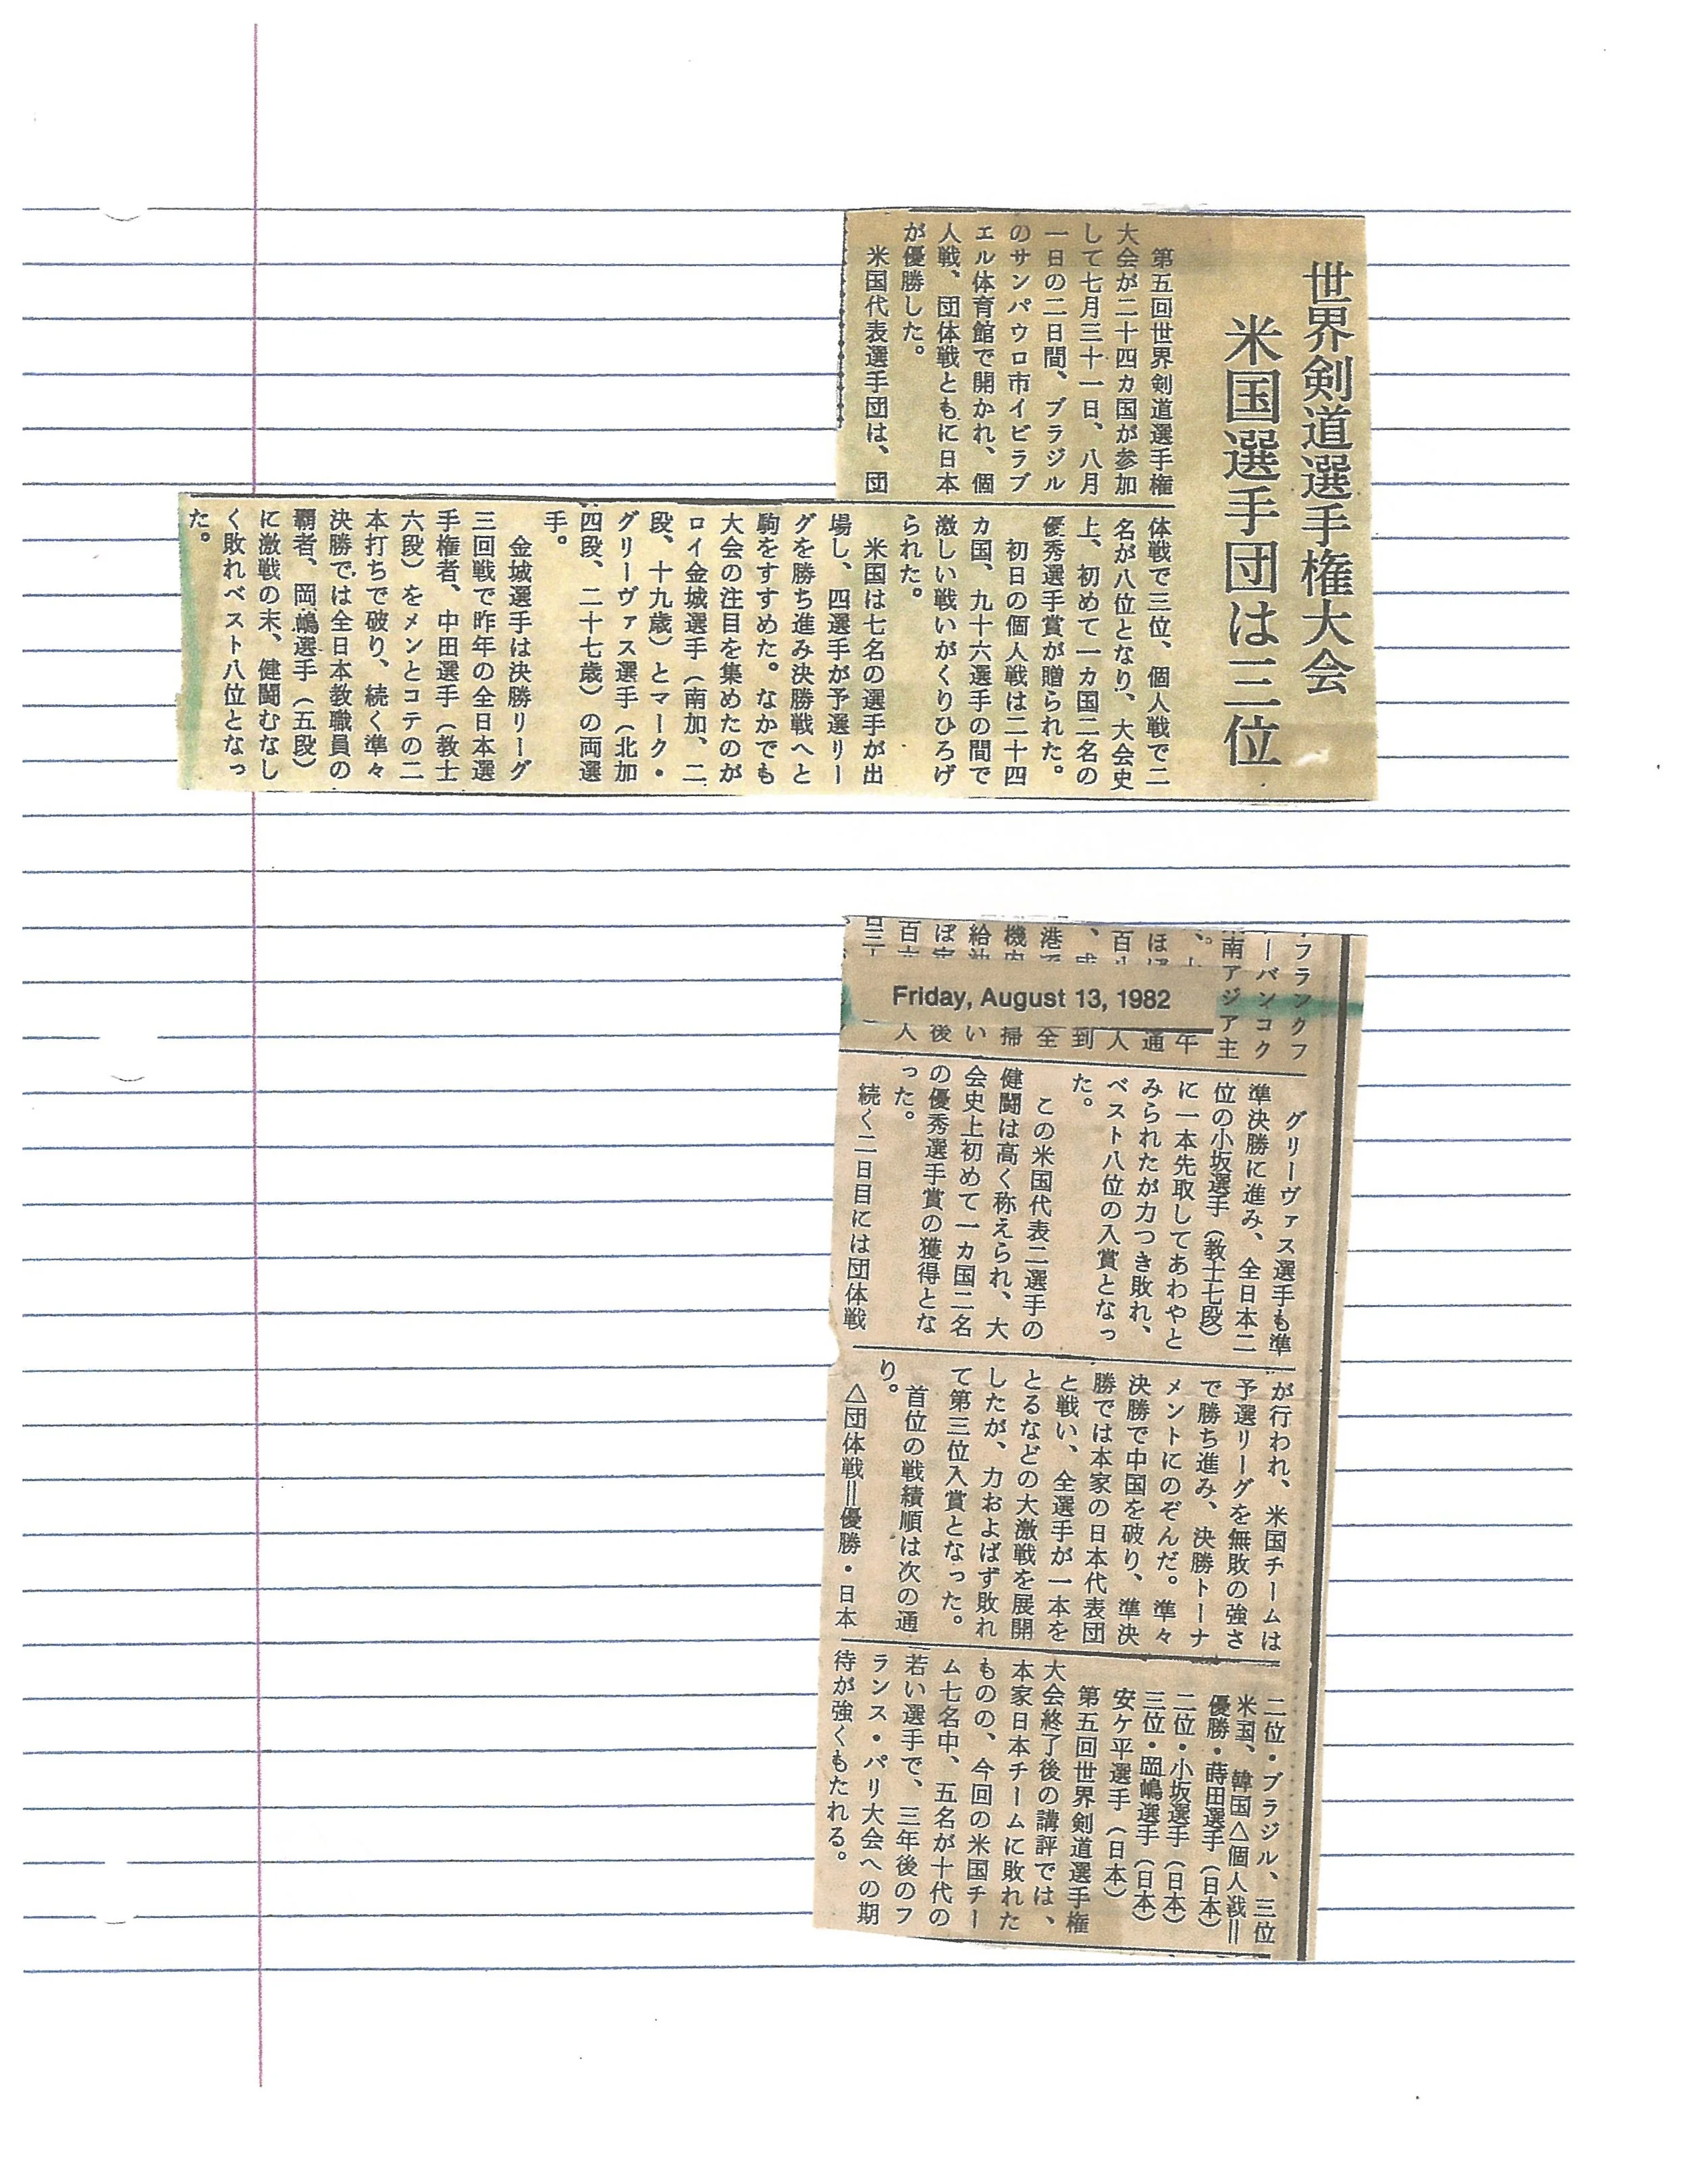 世界剣道選手権大会
米国選手団は三位
第五回世界剣道選手権
大会が二十四カ国が参加
して七月三十一日、八月
一日の二日間、ブラジル
のサンパウロ市イビラブ
エル体育館で開かれ、個
人戦、団体戦ともに日本
が優勝した。
米国代表選手団は、団
体戦で三位、個人戦で二
名が八位となり、大会史
上、初めて一カ国二名の
優秀選手賞が贈られた。
初日の個人戦は二十四
カ国、九十六選手の間で
激しい戦いがくりひろげ
られた。
米国は七名の選手が出
場し、四選手が予選リー
グを勝ち進み決勝戦へと
駒をすすめた。なかでも
大会の注目を集めたのが
ロイ金城選手（南加、二
段、十九歳）とマーク・
グリーヴァス選手（北加
四段、二十七歳）の両選
手。
金城選手は決勝リーグ
三回戦で昨年の全日本選
手権者、中田選手（教士
六段）をメンとコテの二
本打ちで破り、続く準々
決勝では全日本教職員の
覇者、岡嶋選手（五段）
に激戦の末、健闘むなし
く敗れベスト八位となっ
た。
フランクフ
ーバンコク
南アジア主
Friday, August 13, 1982
グリーヴァス選手も準
準決勝に進み、全日本二
位の小坂選手（教士七段）
に一本先取してあわやと
みられたが力つき敗れ、
ベスト八位の入賞となっ
た。
この米国代表二選手の
健闘は高く称えられ、大
会史上初めて一カ国二名
の優秀選手賞の獲得とな
った。
続く二日目には団体戦
が行われ、米国チームは
予選リーグを無敗の強さ
で勝ち進み、決勝トーナ
メントにのぞんだ。準々
決勝で中国を破り、準決
勝では本家の日本代表団
と戦い、全選手が一本を
とるなどの大激戦を展開
したが、力およばず敗れ
て第三位入賞となった。
首位の戦績順は次の通
り。
△団体戦＝優勝・日本
二位・ブラジル、三位
米国、韓国△個人戦＝
優勝・蒔田選手（日本）
二位・小坂選手（日本）
三位・岡嶋選手（日本）
安ケ平選手（日本）
第五回世界剣道選手権
大会終了後の講評では、
本家日本チームに敗れた
ものの、今回の米国チー
ム七名中、五名が十代の
若い選手で、三年後のフ
ランス・パリ大会への期
待が強くもたれる。